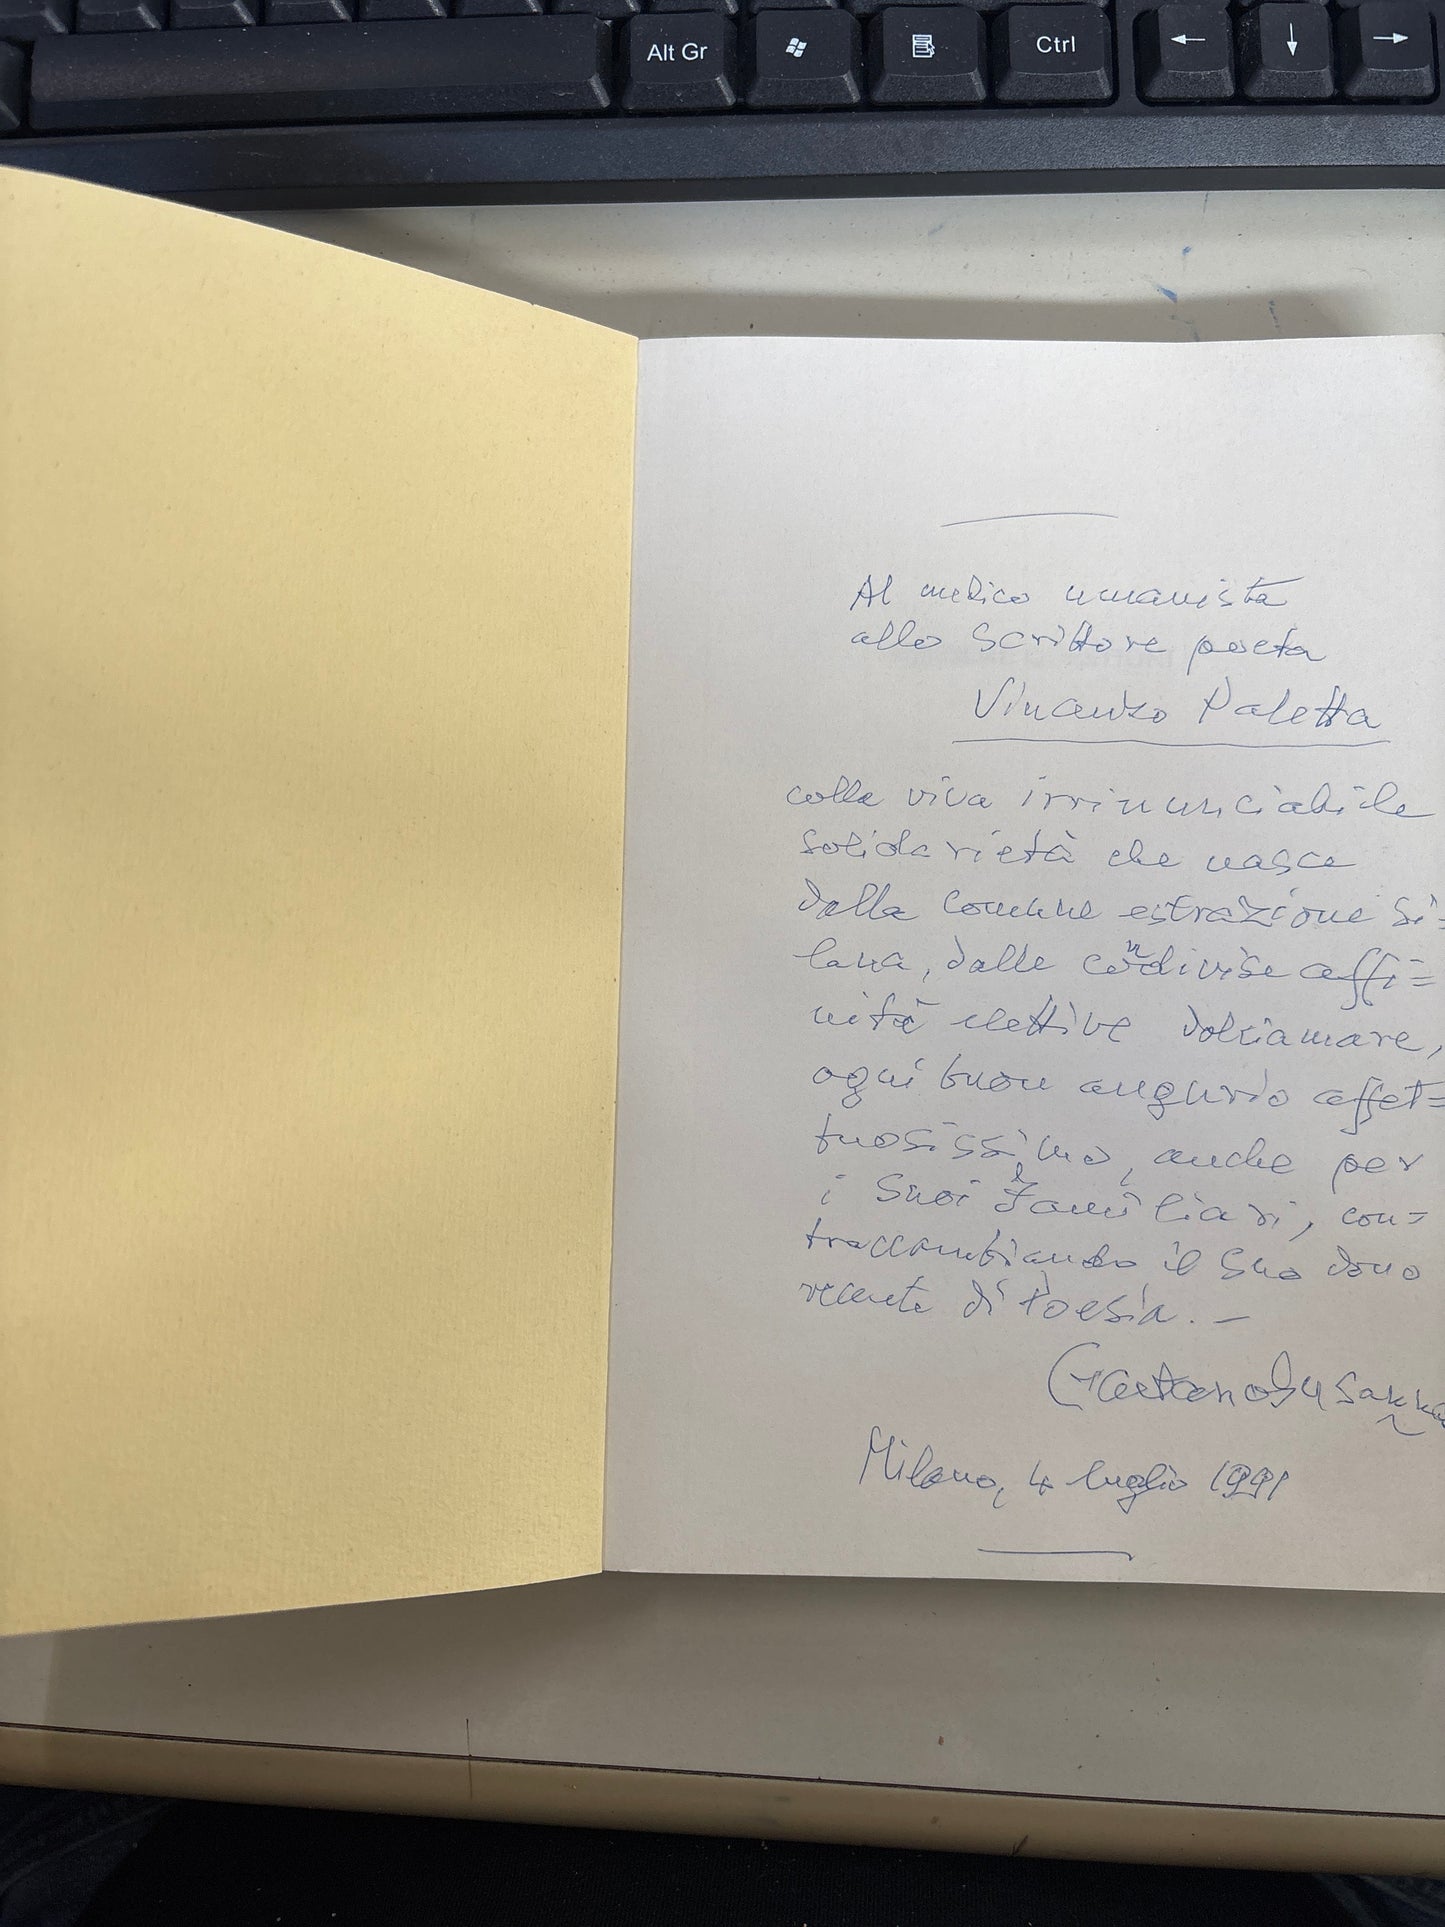 Alt Gr
Ctrl
Al medico umanista
allo Scrittore poeta
Vincenzo Paletta
colla viva irrinunciabile
solidarietà che nasce
dalla comune estrazione Si=
lana, dalle condivise affi=
nità elettive dolciamare,
ogni buon augurio affet=
tuosissimo, anche per
i Suoi Familiari, con=
traccambiando il Suo dono
recente di Poesia. —
Gaetano
Milano, 4 luglio 1991